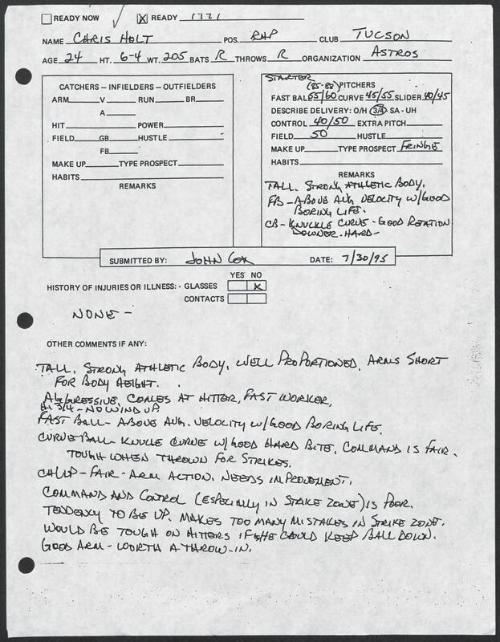 READY NOW X READY 1771
NAME CHRIS HOLT POS. RHP CLUB TUCSON
AGE 24 HT. 6-4 WT. 205 BATS R THROWS R ORGANIZATION ASTROS
CATCHERS – INFIELDERS – OUTFIELDERS
ARM V RUN BR
A
HIT POWER
FIELD GB HUSTLE
FB
MAKE UP TYPE PROSPECT
HABITS
REMARKS
STARTER
(85-88) PITCHERS
FAST BALL 55/60 CURVE 45/55 SLIDER 40/45
DESCRIBE DELIVERY: O/H 3/4 SA - UH
CONTROL 40/50 EXTRA PITCH
FIELD 50 HUSTLE
MAKE UP TYPE PROSPECT FRINGE
HABITS
REMARKS
TALL. STRONG ATHLETIC BODY.
FB - ABOVE AVG VELOCITY W/GOOD
BORING LIFE.
CB - KNUCKLE CURVE - GOOD ROTATION
DOWNER - HARD -
SUBMITTED BY: JOHN COX DATE: 7/30/95
YES NO
HISTORY OF INJURIES OR ILLNESS: - GLASSES X
CONTACTS
NONE -
OTHER COMMENTS IF ANY:
TALL, STRONG ATHLETIC BODY. WELL PROPORTIONED, ARMS SHORT
FOR BODY HEIGHT.
AGGRESSIVE, COMES AT HITTER, FAST WORKER,
HI 3/4 - NO WIND UP
FAST BALL - ABOVE AVG. VELOCITY W/GOOD BORING LIFE.
CURVE BALL KNUCKLE CURVE W/GOOD HARD BITE. COMMAND IS FAIR.
TOUGH WHEN THROWN FOR STRIKES.
CH/UP - FAIR - ARM ACTION. NEEDS IMPROVEMENT.
COMMAND AND CONTROL (ESPECIALLY IN STRIKE ZONE) IS POOR.
TENDENCY TO BE UP. MAKES TOO MANY MISTAKES IN STRIKE ZONE.
WOULD BE TOUGH ON HITTERS IF HE COULD KEEP BALL DOWN.
GOOD ARM - WORTH A THROW-IN.